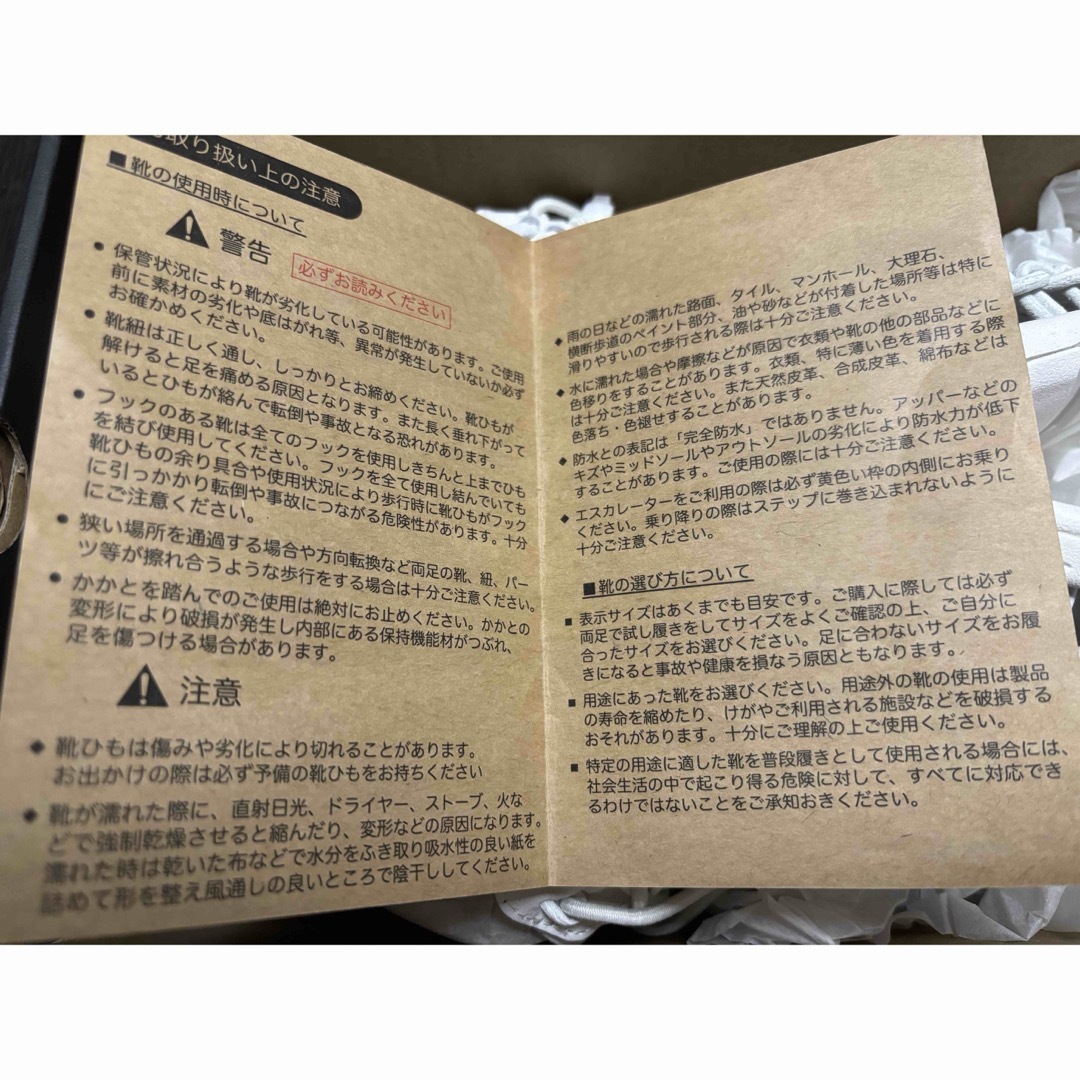 取り扱い上の注意
■靴の使用時について
警告
必ずお読みください
● 保管状況により靴が劣化している可能性があります。ご使用
前に素材の劣化や底はがれ等、異常が発生していないか必ず
お確かめください。
● 靴紐は正しく通し、しっかりとお締めください。靴ひもが
解けると足を痛める原因となります。また長く垂れ下がって
いるとひもが絡んで転倒や事故となる恐れがあります。
● フックのある靴は全てのフックを使用しきちんと上までひも
を結び使用してください。フックを全て使用し結んでいても
靴ひもの余り具合や使用状況により歩行時に靴ひもがフック
に引っかかり転倒や事故につながる危険性があります。十分
にご注意ください。
● 狭い場所を通過する場合や方向転換など両足の靴、紐、パー
ツ等が擦れ合うような歩行をする場合は十分ご注意ください。
● かかとを踏んでのご使用は絶対にお止めください。かかとの
変形により破損が発生し内部にある保持機能材がつぶれ、
足を傷つける場合があります。
注意
◆ 靴ひもは傷みや劣化により切れることがあります。
お出かけの際は必ず予備の靴ひもをお持ちください
◆ 靴が濡れた際に、直射日光、ドライヤー、ストーブ、火な
どで強制乾燥させると縮んだり、変形などの原因になります。
濡れた時は乾いた布などで水分をふき取り吸水性の良い紙を
詰めて形を整え風通しの良いところで陰干ししてください。
◆ 雨の日などの濡れた路面、タイル、マンホール、大理石、
横断歩道のペイント部分、油や砂などが付着した場所等は特に
滑りやすいので歩行される際は十分ご注意ください。
◆ 水に濡れた場合や摩擦などが原因で衣類や靴の他の部品などに
色移りをすることがあります。衣類、特に薄い色を着用する際
は十分ご注意ください。 また天然皮革、合成皮革、綿布などは
色落ち・色褪せすることがあります。
◆ 防水との表記は「完全防水」ではありません。アッパーなどの
キズやミッドソールやアウトソールの劣化により防水力が低下
することがあります。ご使用の際には十分ご注意ください。
◆ エスカレーターをご利用の際は必ず黄色い枠の内側にお乗り
ください。乗り降りの際はステップに巻き込まれないように
十分ご注意ください。
■靴の選び方について
■ 表示サイズはあくまでも目安です。ご購入に際しては必ず
両足で試し履きをしてサイズをよくご確認の上、ご自分に
合ったサイズをお選びください。足に合わないサイズをお履
きになると事故や健康を損なう原因ともなります。
■ 用途にあった靴をお選びください。用途外の靴の使用は製品
の寿命を縮めたり、けがやご利用される施設などを破損する
おそれがあります。十分にご理解の上ご使用ください。
■ 特定の用途に適した靴を普段履きとして使用される場合には、
社会生活の中で起こり得る危険に対して、すべてに対応でき
るわけではないことをご承知おきください。